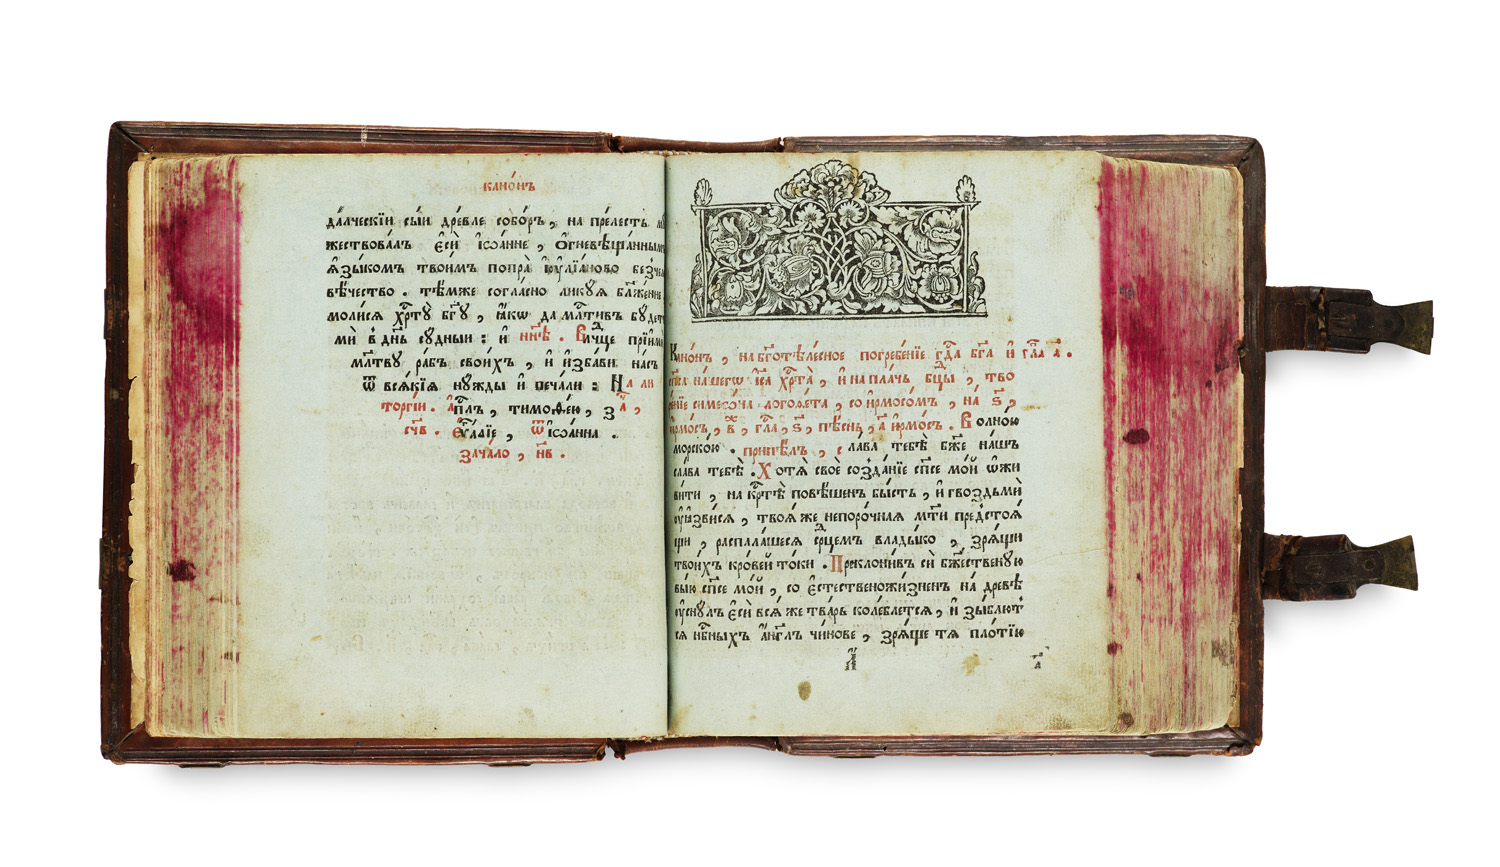 кано́нъ
да́лческїи сы́и дре́вле собо́ръ, на пре́лесть мꙋ
жествова́лъ є҆сѝ і҆ѡа́нне, ѻ҆гневѣща́ннымъ
ꙗ҆зы́комъ твои́мъ попра̀ і҆ꙋлїа́ново безче
вѣ́чество. тѣ́мже согла́сно ликꙋ́ѧ бл҃же́нне
моли́сѧ хрⷭ҇тꙋ̀ бг҃ꙋ, ꙗ҆́кѡ да мл҃тивъ бꙋ́детъ
мѝ в дн҃ь сꙋ́дныи: и҆ нн҃ѣ. Влⷣчце прїимѝ
мл҃твꙋ ра́бъ свои́хъ, и҆ и҆зба́ви на́съ
ѿ всѧ́кїѧ нꙋ́жды и҆ печа́ли: На ли
тꙋргі́и. а҆пⷭ҇лъ, тимоѳе́ю, з҃,
сч҃в. є҆ѵⷢ҇лїе, ѿ і҆ѡа́нна.
зача́ло, н҃в.
Кано́нъ, на бг҃отѣле́сное погребе́нїе гдⷭ҇а бг҃а и҆ гла́ а҃.
сп҃са на́шегѡ і҆с҃а хрⷭ҇та̀, и҆ на пла́чь бц҃ы, тво
ре́нїе симеѡ́на логоѳе́та, со і҆рмосо́мъ, на ѕ҃,
і҆рмо́съ, в҃, гла́, ѕ҃, пѣ́снь, а҃ і҆рмо́съ. Волно́ю
морско́ю. припѣ́лъ, сла́ва тебѣ̀ бж҃е на́шъ
сла́ва тебѣ̀. Хотѧ̀ своѐ созда́нїе сп҃се мо́й ѡ҆жи
ви́ти, на крⷭ҇тѣ̀ повѣ́шенъ бы́сть, и҆ гвоздьмѝ
ᲂу҆ѧзви́сѧ, твоѧ́ же непоро́чная мт҃и предстоѧ́
щи, распала́шесѧ срⷣцемъ влады́ко, зрѧ́щи
твои́хъ крове́й то́ки. Преклони́въ сѝ бж҃е́ственꙋю
вы́ю сп҃се мо́й, со є҆сте́ственожи́зненъ на дре́вѣ
ᲂу҆снꙋ́лъ є҆сѝ всѧ́ же тва́рь коле́блетсѧ, и҆ зы́блют
сѧ нбⷭ҇ныхъ а҆́нг҃лъ чи́нове, зрѧ́ще тѧ пло́тїю
а҃